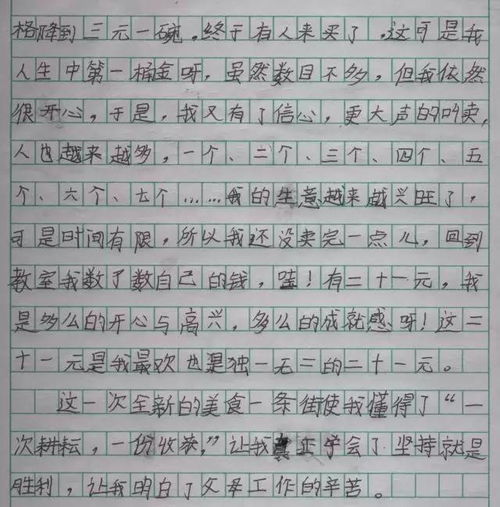 格降到三元一碗。终于有人来买了，这可是我
人生中第一桶金呀，虽然数目不多，但我依然
很开心，于是，我又有了信心，更大声的叫卖，
人也越来越多，一个、二个、三个、四个、五
个、六个、七个……我的生意越来越兴旺了，
可是时间有限，所以我还没卖完一点儿，回到
教室我数了数自己的钱，哇！有二十一元，我
是多么的开心与高兴，多么的成就感呀！这二
十一元是我最欢也是独一无二的二十一元。
这一次全新的美食一条街使我懂得了“一
次耕耘，一份收获，”让我真正学会了坚持就是
胜利，让我明白了父母工作的辛苦。